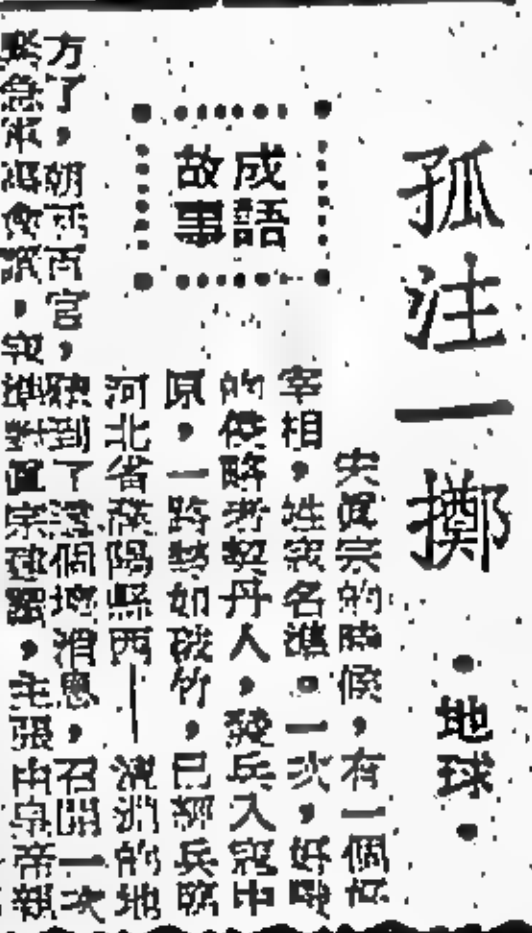 孤注一擲
•地球•
成語
故事
宋眞宗的時候，有一個
宰相，姓寇名準。一次，好戰
的侵略者契丹人，發兵入寇中
原，一路勢如破竹，已經兵臨
河北省濮陽縣西——澶淵的地
方了，朝廷百官，聽到了這個壞消息，召開一次
緊急軍事會議，寇準對眞宗建議，主張由皇帝親